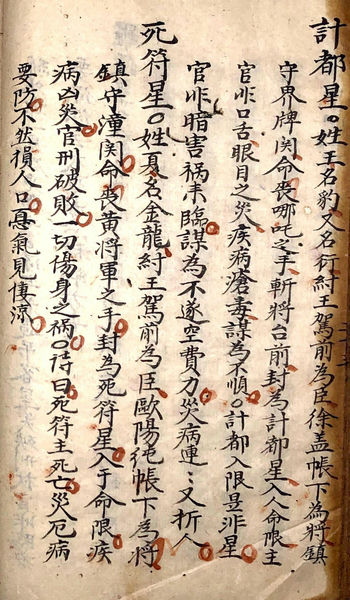 計都星。姓王名豹又名衍紂王駕前為臣徐盖帳下為將鎮
守界牌関命喪哪吒之手斬將台前封為計都星入人命限主
官非口舌眼目之災疾病瘡毒謀為不順。計都入限是非星
官非暗害祸来臨謀為不遂空費力災病連:又折人
死符星。姓夏名金龍紂王駕前為臣歐陽純帳下為將
鎮守潼関命喪黄將軍之手封為死符星入于命限疾
病凶災官刑破敗一切傷身之祸。诗曰死符主死亡災厄病
要防不然損人口悪氣見悽涼